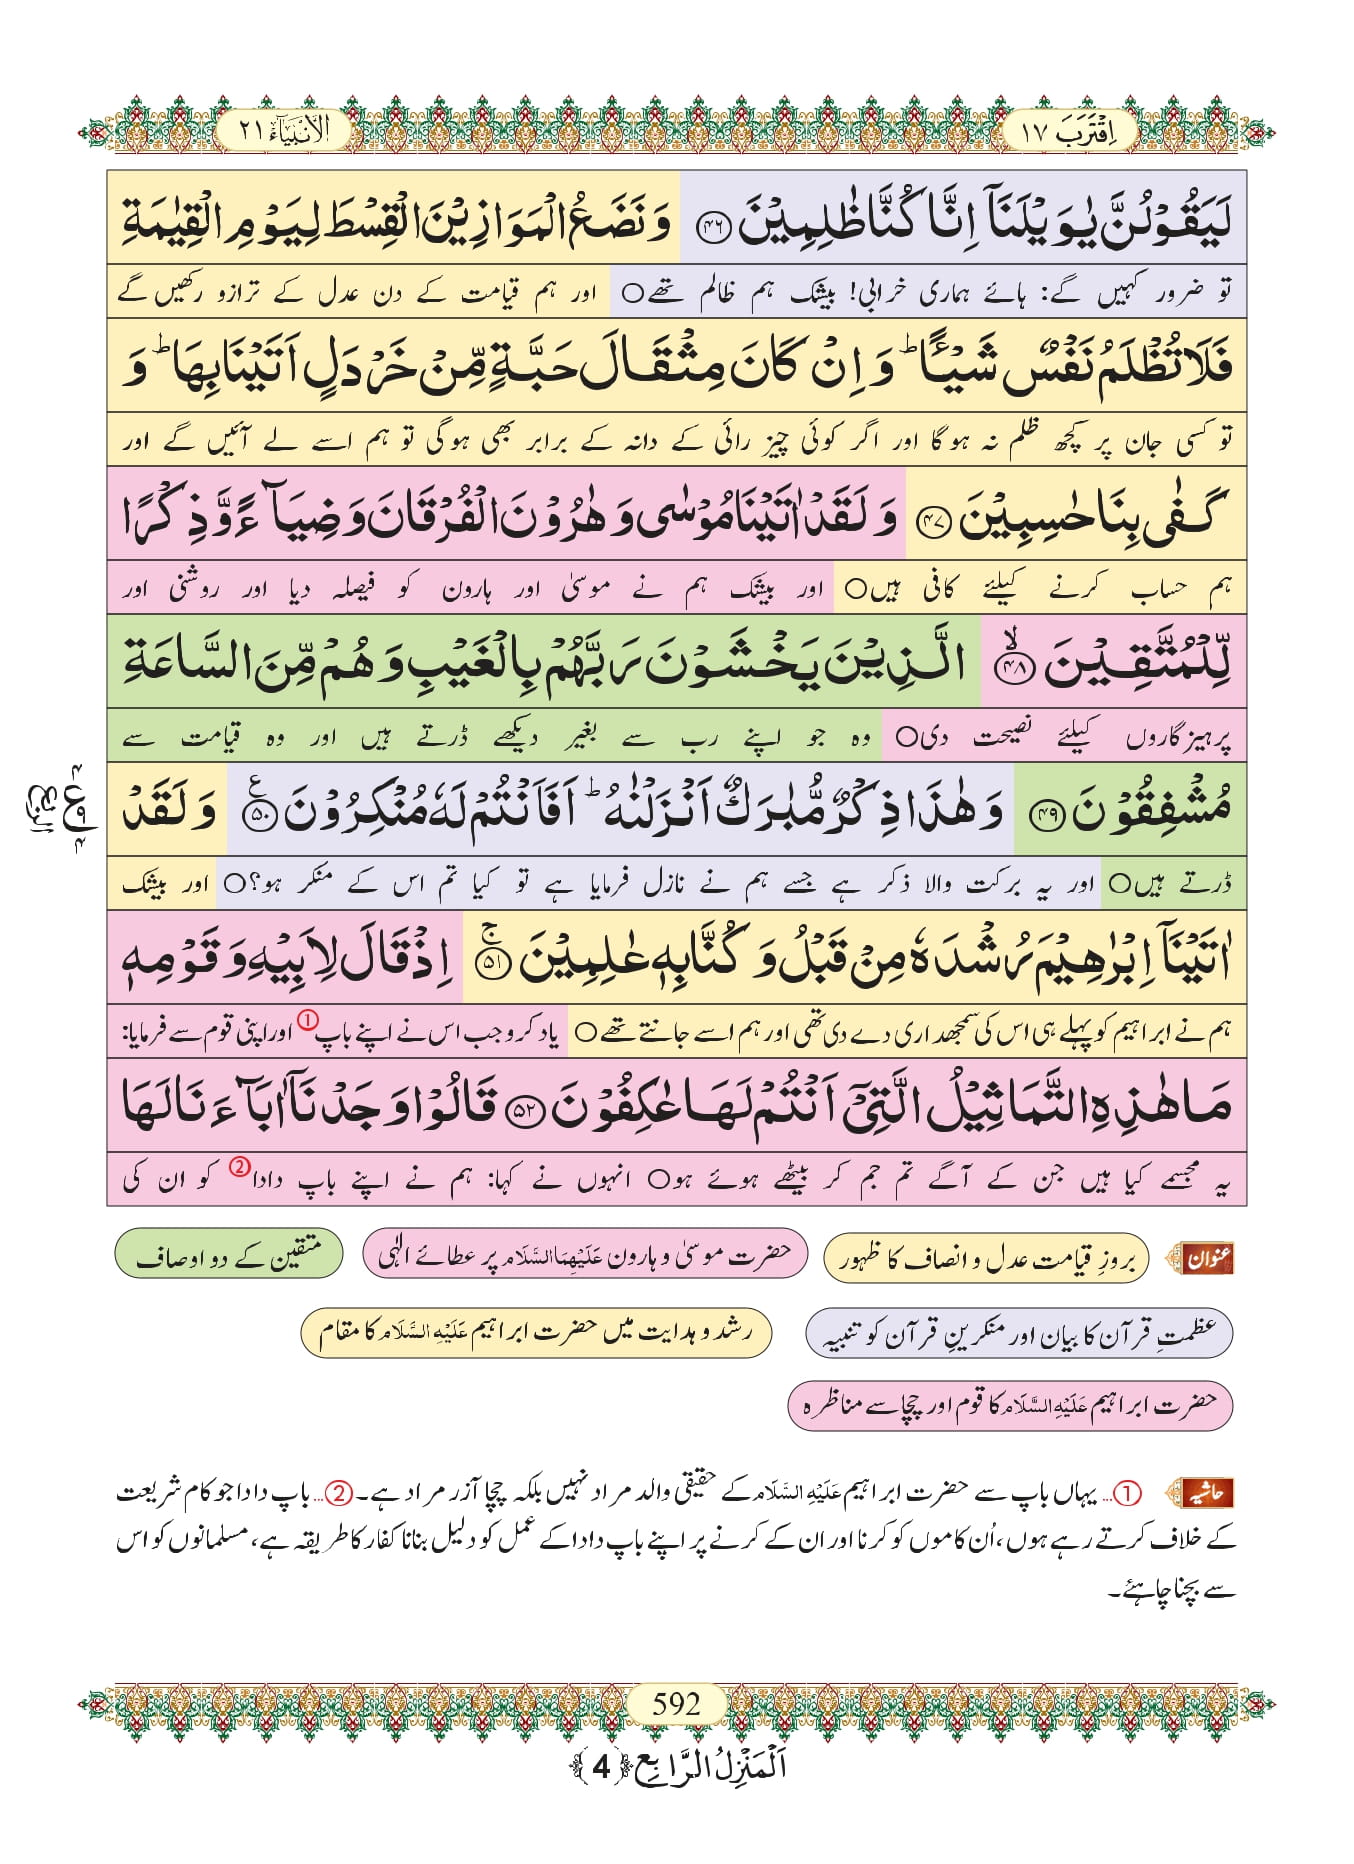 اِقْتَرَبَ ۱۷
الْاَنْۢبِيَآء ۲۱
لَيَقُوْلُنَّ يٰوَيْلَنَاۤ اِنَّا كُنَّا ظٰلِمِيْنَ ﴿۴۶﴾ وَنَضَعُ الْمَوَازِيْنَ الْقِسْطَ لِيَوْمِ الْقِيٰمَةِ
تو ضرور کہیں گے: ہائے ہماری خرابی! بیشک ہم ظالم تھے○ اور ہم قیامت کے دن عدل کے ترازو رکھیں گے
فَلَا تُظْلَمُ نَفْسٌ شَيْـًٔا ؕ وَ اِنْ كَانَ مِثْقَالَ حَبَّةٍ مِّنْ خَرْدَلٍ اَتَيْنَا بِهَا ؕ وَ
تو کسی جان پر کچھ ظلم نہ ہوگا اور اگر کوئی چیز رائی کے دانہ کے برابر بھی ہوگی تو ہم اسے لے آئیں گے اور
كَفٰى بِنَا حٰسِبِيْنَ ﴿۴۷﴾ وَلَقَدْ اٰتَيْنَا مُوْسٰى وَهٰرُوْنَ الْفُرْقَانَ وَضِيَآءً وَّذِكْرًا
ہم حساب کرنے کیلئے کافی ہیں○ اور بیشک ہم نے موسیٰ اور ہارون کو فیصلہ دیا اور روشنی اور
لِّلْمُتَّقِيْنَ ﴿۴۸﴾ۙ الَّذِيْنَ يَخْشَوْنَ رَبَّهُمْ بِالْغَيْبِ وَهُمْ مِّنَ السَّاعَةِ
پرہیزگاروں کیلئے نصیحت دی○ وہ جو اپنے رب سے بغیر دیکھے ڈرتے ہیں اور وہ قیامت سے
مُشْفِقُوْنَ ﴿۴۹﴾ وَهٰذَا ذِكْرٌ مُّبٰرَكٌ اَنْزَلْنٰهُ ؕ اَفَاَنْتُمْ لَهٗ مُنْكِرُوْنَ ﴿۵۰﴾ع وَلَقَدْ
ڈرتے ہیں○ اور یہ برکت والا ذکر ہے جسے ہم نے نازل فرمایا ہے تو کیا تم اس کے منکر ہو؟○ اور بیشک
اٰتَيْنَاۤ اِبْرٰهِيْمَ رُشْدَهٗ مِنْ قَبْلُ وَكُنَّا بِهٖ عٰلِمِيْنَ ﴿۵۱﴾ۚ اِذْ قَالَ لِاَبِيْهِ وَقَوْمِهٖ
ہم نے ابراہیم کو پہلے ہی اس کی سمجھداری دے دی تھی اور ہم اسے جانتے تھے○ یاد کرو جب اس نے اپنے باپ① اور اپنی قوم سے فرمایا:
مَا هٰذِهِ التَّمَاثِيْلُ الَّتِيْۤ اَنْتُمْ لَهَا عٰكِفُوْنَ ﴿۵۲﴾ قَالُوْا وَجَدْنَاۤ اٰبَآءَنَا لَهَا
یہ مجسمے کیا ہیں جن کے آگے تم جم کر بیٹھے ہوئے ہو○ انہوں نے کہا: ہم نے اپنے باپ دادا② کو ان کی
عنوان بروزِ قیامت عدل و انصاف کا ظہور حضرت موسیٰ و ہارون عَلَيْهِمَا السَّلَام پر عطائے الٰہی متقین کے دو اوصاف
عظمتِ قرآن کا بیان اور منکرینِ قرآن کو تنبیہ رشد و ہدایت میں حضرت ابراہیم عَلَيْهِ السَّلَام کا مقام
حضرت ابراہیم عَلَيْهِ السَّلَام کا قوم اور چچا سے مناظرہ
حاشیہ ①... یہاں باپ سے حضرت ابراہیم عَلَيْهِ السَّلَام کے حقیقی والد مراد نہیں بلکہ چچا آزر مراد ہے۔ ②... باپ دادا جو کام شریعت
کے خلاف کرتے رہے ہوں، اُن کاموں کو کرنا اور ان کے کرنے پر اپنے باپ دادا کے عمل کو دلیل بنانا کفار کا طریقہ ہے، مسلمانوں کو اس
سے بچنا چاہئے۔
592
اَلْمَنْزِلُ الرَّابِع ﴿4﴾